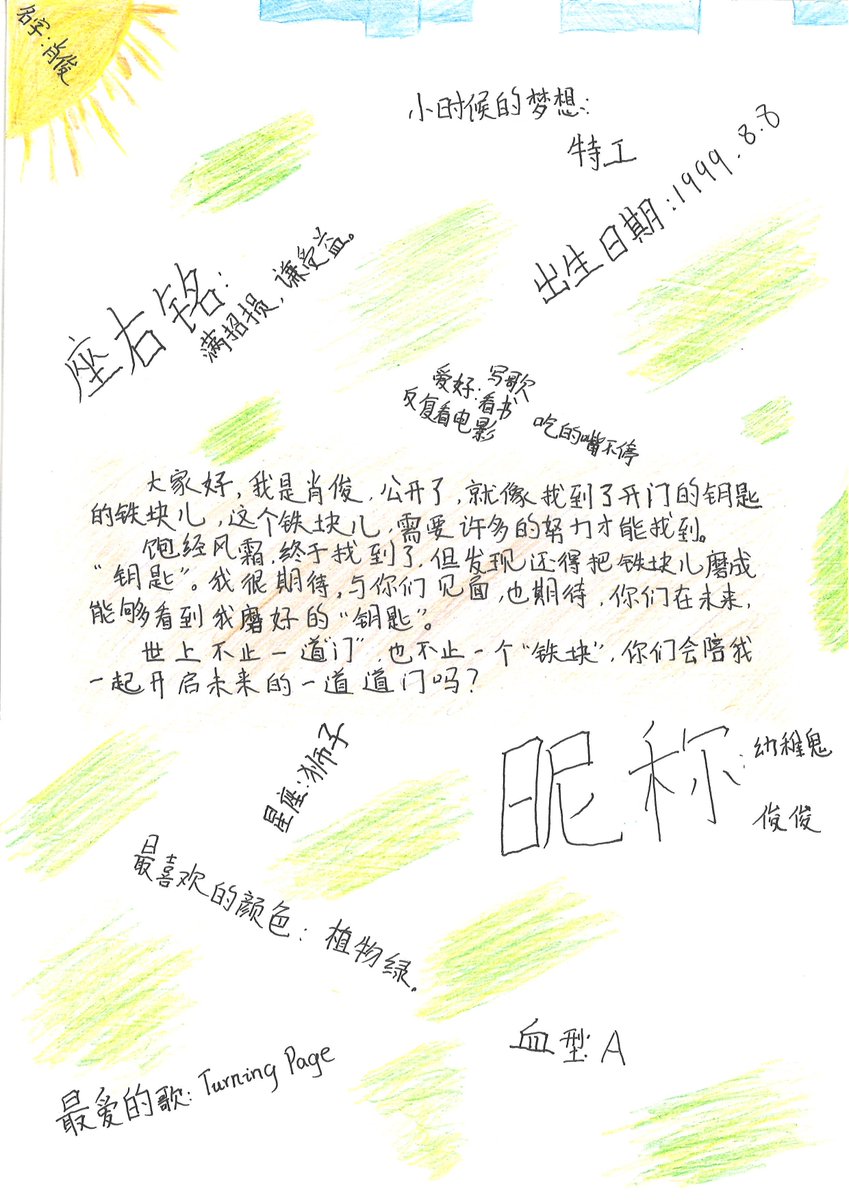 名字:肖俊
小时候的梦想:
特工
出生日期:1999.8.8
座右铭:
满招损,谦受益。
爱好:写歌
看书
反复看电影
吃的嘴不停
大家好,我是肖俊,公开了,就像找到了开门的钥匙
的铁块儿,这个铁块儿,需要许多的努力才能找到。
饱经风霜,终于找到了,但发现还得把铁块儿磨成
“钥匙”。我很期待,与你们见面,也期待,你们在未来,
能够看到我磨好的“钥匙”。
世上不止一道“门”,也不止一个“铁块”,你们会陪我
一起开启未来的一道道门吗?
昵称:幼稚鬼
俊俊
星座:狮子
最喜欢的颜色:植物绿.
血型:A
最爱的歌:Turning Page